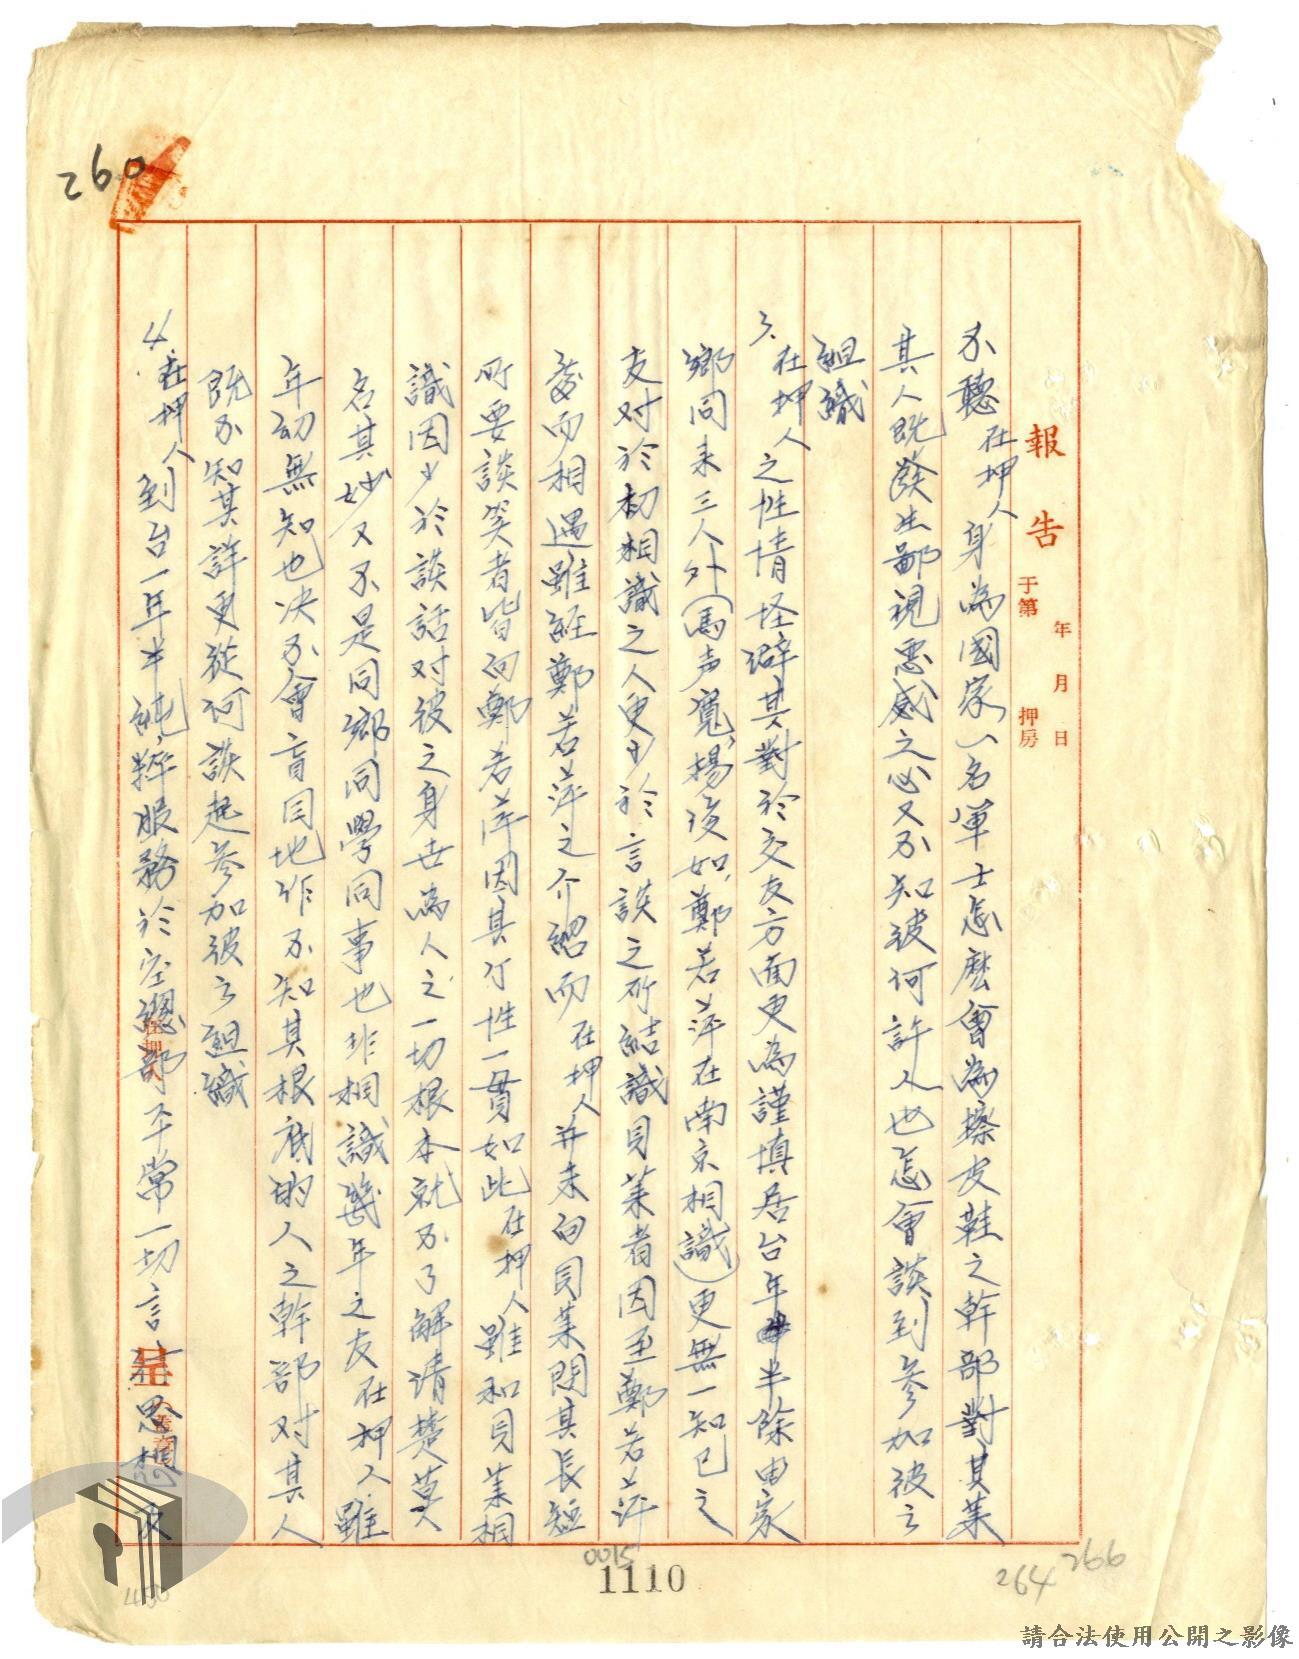 260
報告
年 月 日
于第 押房
不聽在押人身為國家一名軍士怎麼會為擦皮鞋之幹部對其葉
其人既發生鄙視惡感之心又不知彼何許人也怎會談到參加彼之
組織
3.在押人之性情怪僻其對於交友方面更為謹填居台年半除由家
鄉同來三人外(馬声寬,楊後如,鄭若萍在南京相識)更無一知己之
友对於初相識之人更少於言談之所結識貝葉者因至鄭若萍
處而相遇雖經鄭若萍之介紹而在押人並未向貝葉問其長短
所要談笑者皆向鄭若萍因其個性一貫如此在押人雖和貝葉相
識因少於談話对彼之身世為人之一切根本就不了解清楚莫
名其妙又不是同鄉同學同事也非相識幾年之友在押人雖
年幼無知也決不會盲目地作不知其根底的人之幹部对其人
既不知其詳更從何談起參加彼之組織
4.在押人到台一年半純粹服務於空總部平常一切言行思想及
呈
0015
1110
264
266
請合法使用公開之影像